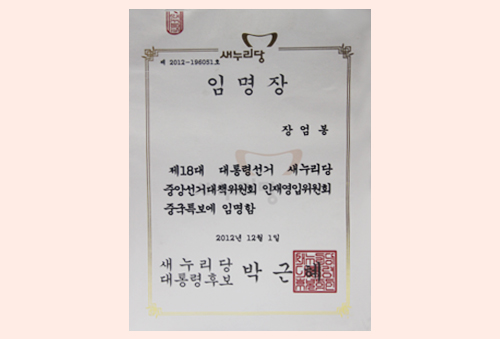 새누리당
제 2012-196051호
임명장
장엄봉
제18대 대통령선거 새누리당
중앙선거대책위원회 인재영입위원회
중국특보에 임명함
2012년 12월 1일
새누리당
대통령후보 박근혜